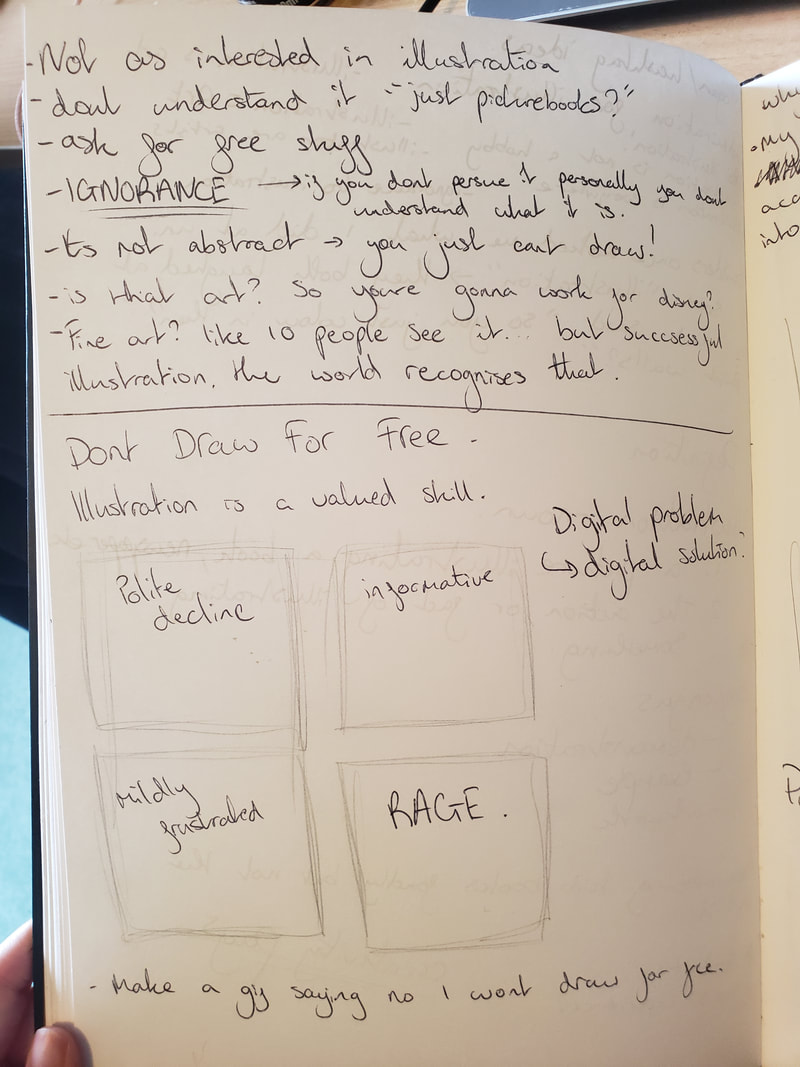 -Not as interested in illustration
- dont understand it - "just picturebooks?"
- ask for free stuff
- IGNORANCE → if you dont persue it personally you dont
understand what it is.
- Its not abstract → you just cant draw!
- is that art? So youre gonna work for disney?
- Fine art? like 10 people see it... but succsesful
illustration, the world recognises that.
Dont Draw For Free -
Illustration is a valued skill.
Digital problem
↳ digital solution?
Polite
decline
informative
mildly
frustrated
RAGE.
- Make a gif saying no I wont draw for free.
why
• My
acc
into